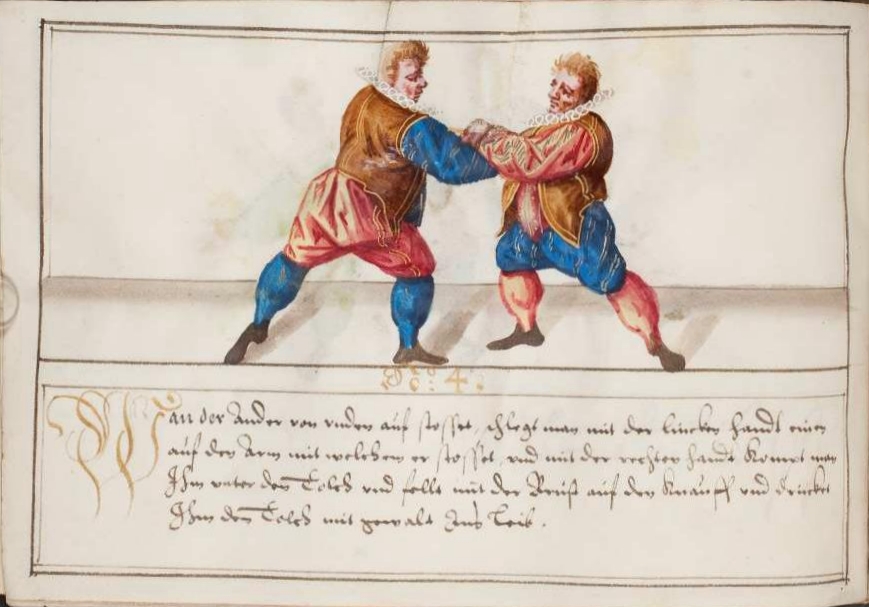 No: 4.
Wan der Ander von vnden auf stosset, schlegt man mit der lincken handt einen
auf den Arm mit welchem er stosset, vnd mit der rechten handt kompt man
Ihm vnter den Tolch vnd fellt mit der Brust auf den Knauff vnd drucket
Ihm den Tolch mit gewalt Ins Leib.